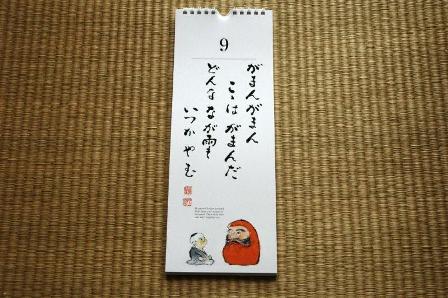 9
がまんがまん
こゝは がまんだ
どんな なが雨も
いつか やむ